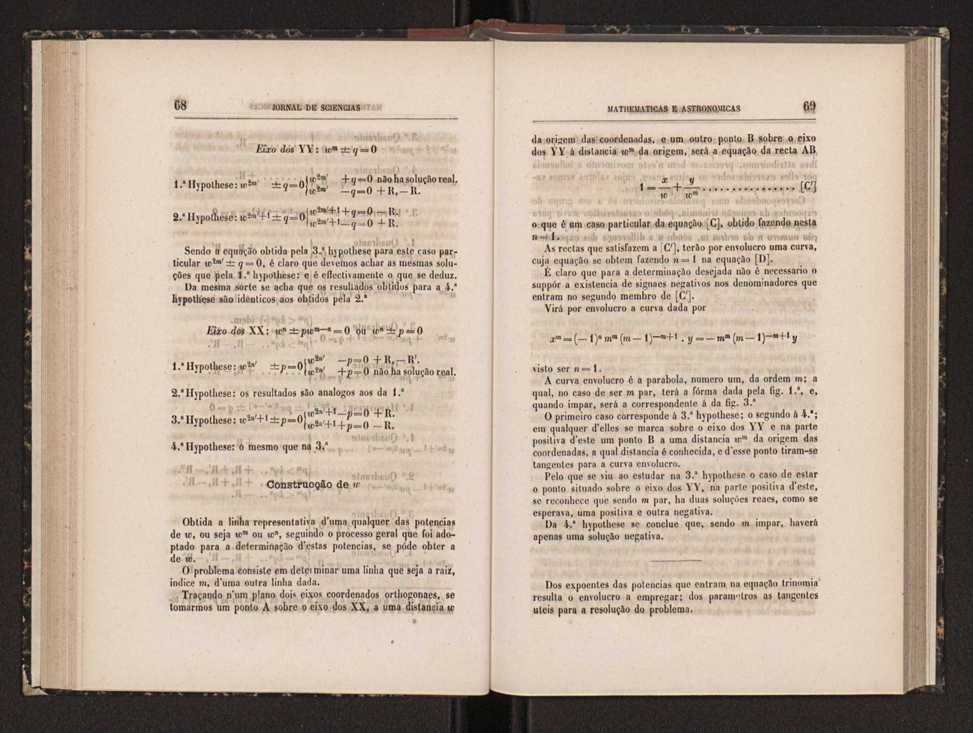 68 JORNAL DE SCIENCIAS
Eixo dos YY: wᵐ ± q = 0
1.ª Hypothese: w²ᵐ′ ± q = 0 { w²ᵐ′ + q = 0 não ha solução real.
w²ᵐ′ — q = 0 + R, — R.
2.ª Hypothese: w²ᵐ′⁺¹ ± q = 0 { w²ᵐ′⁺¹ + q = 0 — R.
w²ᵐ′⁺¹ — q = 0 + R.
Sendo a equação obtida pela 3.ª hypothese para este caso par-
ticular w²ᵐ′ ± q = 0, é claro que devemos achar as mesmas solu-
ções que pela 1.ª hypothese: e é effectivamente o que se deduz.
Da mesma sorte se acha que os resultados obtidos para a 4.ª
hypothese são identicos aos obtidos pela 2.ª
Eixo dos XX: wⁿ ± pwᵐ⁻ⁿ = 0 ou wⁿ ± p = 0
1.ª Hypothese: w²ⁿ′ ± p = 0 { w²ⁿ′ — p = 0 + R, — R′.
w²ⁿ′ + p = 0 não ha solução real.
2.ª Hypothese: os resultados são analogos aos da 1.ª
3.ª Hypothese: w²ⁿ′⁺¹ ± p = 0 { w²ⁿ′⁺¹ — p = 0 + R.
w²ⁿ′⁺¹ + p = 0 — R.
4.ª Hypothese: o mesmo que na 3.ª
Construcção de w
Obtida a linha representativa d'uma qualquer das potencias
de w, ou seja wᵐ ou wⁿ, seguindo o processo geral que foi ado-
ptado para a determinação d'estas potencias, se póde obter a
de w.
O problema consiste em determinar uma linha que seja a raiz,
indice m, d'uma outra linha dada.
Traçando n'um plano dois eixos coordenados orthogonaes, se
tomarmos um ponto A sobre o eixo dos XX, a uma distancia w
MATHEMATICAS E ASTRONOMICAS 69
da origem das coordenadas, e um outro ponto B sobre o eixo
dos YY á distancia wᵐ da origem, será a equação da recta AB
1 = x/w + y/wᵐ . . . . . . . . . . . . . . . . [C′]
o que é um caso particular da equação [C], obtido fazendo nesta
n = 1.
As rectas que satisfazem a [C′], terão por envolucro uma curva,
cuja equação se obtem fazendo n = 1 na equação [D].
É claro que para a determinação desejada não é necessario o
suppôr a existencia de signaes negativos nos denominadores que
entram no segundo membro de [C′].
Virá por envolucro a curva dada por
xᵐ = (— 1)ⁿ mᵐ (m — 1)⁻ᵐ⁺¹ . y = — mᵐ (m — 1)⁻ᵐ⁺¹ y
visto ser n = 1.
A curva envolucro é a parabola, numero um, da ordem m; a
qual, no caso de ser m par, terá a fórma dada pela fig. 1.ª, e,
quando impar, será a correspondente á da fig. 3.ª
O primeiro caso corresponde á 3.ª hypothese; o segundo á 4.ª;
em qualquer d'elles se marca sobre o eixo dos YY e na parte
positiva d'este um ponto B a uma distancia wᵐ da origem das
coordenadas, a qual distancia é conhecida, e d'esse ponto tiram-se
tangentes para a curva envolucro.
Pelo que se viu ao estudar na 3.ª hypothese o caso de estar
o ponto situado sobre o eixo dos YY, na parte positiva d'este,
se reconhece que sendo m par, ha duas soluções reaes, como se
esperava, uma positiva e outra negativa.
Da 4.ª hypothese se conclue que, sendo m impar, haverá
apenas uma solução negativa.
Dos expoentes das potencias que entram na equação trinomia
resulta o envolucro a empregar; dos parametros as tangentes
uteis para a resolução do problema.